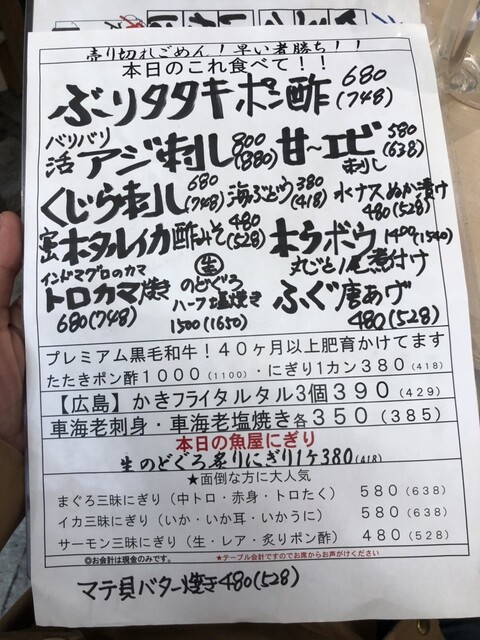 売り切れごめん!早い者勝ち!!
本日のこれ食べて!!
ぶりタタキポン酢 680 (748)
バリバリ
活アジ刺し 800 (880) 甘〜エビ刺し 580 (638)
くじら刺し 680 (748) 海ぶどう 380 (418) 水ナスぬか漬け 480 (528)
ホタルイカ酢みそ 480 (528) ホウボウ 1400 (1540)
丸ごと1尾煮付け
インドマグロのカマ
トロカマ焼き 680 (748)
生 のどぐろ
ハーフ塩焼き 1500 (1650)
ふぐ唐あげ 480 (528)
プレミアム黒毛和牛!40ヶ月以上肥育かけてます
たたきポン酢1000(1100)・にぎり1カン380(418)
【広島】かきフライタルタル3個390(429)
車海老刺身・車海老塩焼き各350(385)
本日の魚屋にぎり
生のどぐろ炙りにぎり1ケ380(418)
★面倒な方に大人気
まぐろ三昧にぎり(中トロ・赤身・トロたく) 580(638)
イカ三昧にぎり(いか・いか耳・いかうに) 580(638)
サーモン三昧にぎり(生・レア・炙りポン酢) 480(528)
◎お会計は現金のみです。 ★テーブル会計ですのでお席からお声がけください
マテ貝バター焼き480(528)